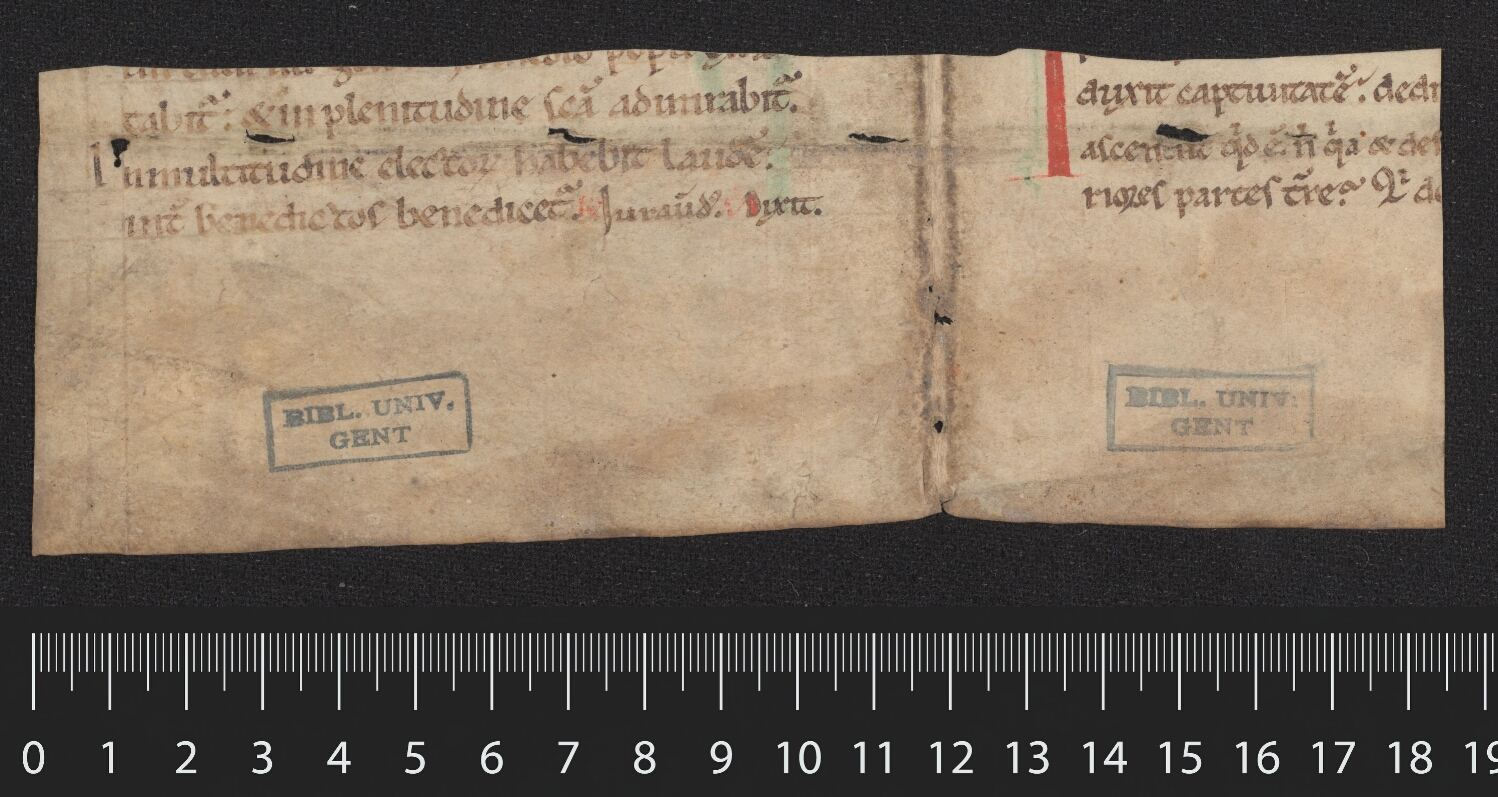 tabit᷑: & in plenitudine scā admirabit᷑.
I n multitudine electoꝝ habebit laudē.
int̄ benedictos benedicet᷑. Iurauđ. Dixit.
duxit captiuitatē. dedi
ascendit qđ ē. n̄ qa & des
riores partes t̄re? Q
BIBL. UNIV.
GENT
BIBL. UNIV.
GENT
0 1 2 3 4 5 6 7 8 9 10 11 12 13 14 15 16 17 18 19